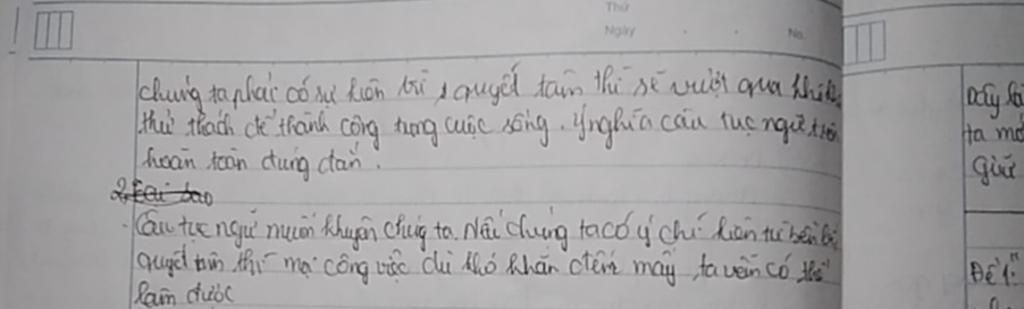 Thứ
Ngày No.
chúng ta phải có sự kiên trì, quyết tâm thì sẽ vượt qua
thử thách để thành công trong cuộc sống. Ý nghĩa câu tục ngữ trên
hoàn toàn đúng đắn.
2,
Câu tục ngữ muốn khuyên chúng ta. Nếu chúng ta có ý chí kiên trì bền bỉ
quyết tâm thì mọi công việc dù khó khăn đến mấy ta vẫn có thể
làm được
Đây là
ta
giữ
Đề 1: